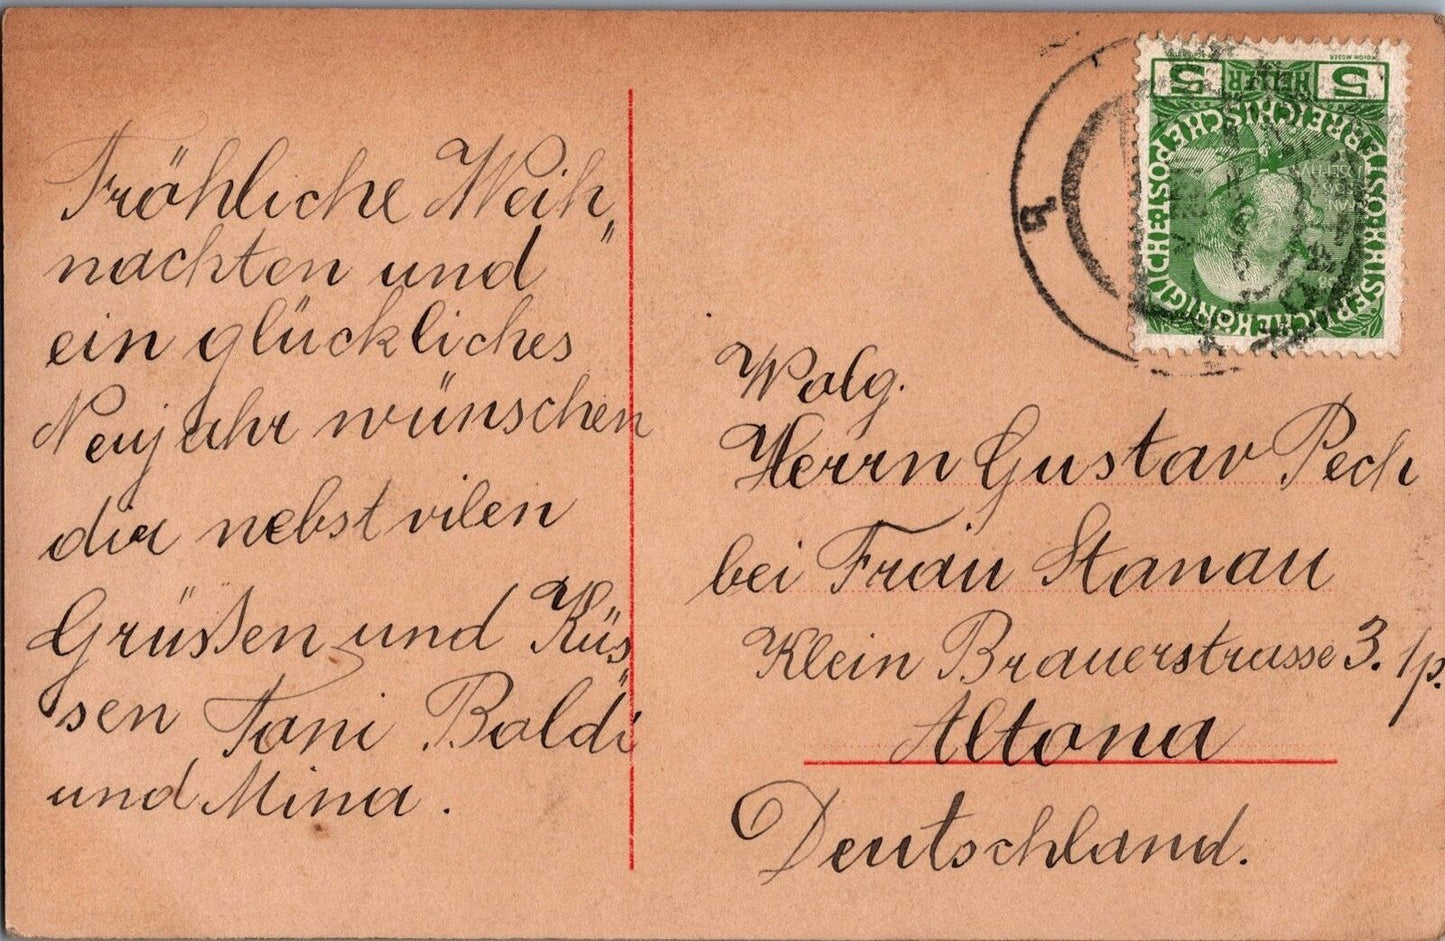 Fröhliche Weih„
nachten und
ein glückliches
Neujahr wünschen
dir nebst vilen
Grüßen und Küs„
sen Toni Boldi
und Mina.
5 HELLER 5
KAISERLICHE KÖNIGLICHE ÖSTERREICHISCHE POST
b
Wolg.
Herrn Gustav Pech
bei Frau Stanau
Klein Brauerstrasse 3. 1/p.
Altona
Deutschland.